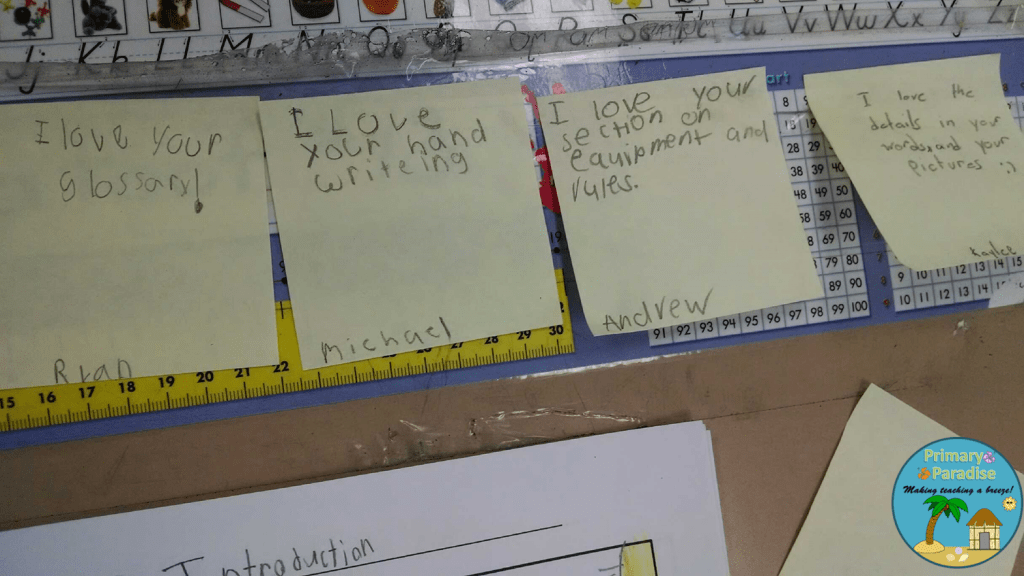 Jj Kk Ll Mm Nn Oo Pp Qq Rr Ss Tt Uu Vv Ww Xx Yy Zz
I love your
glossary!
Ryan
I Love
your hand
writeing
Michael
I love your
section on
equipment and
rules.
Andrew
I love the
details in your
words and your
pictures :)
8
28 29
38 39 40
48 49 50
58 59 60
8 69 70
79 80
89 90
91 92 93 94 95 96 97 98 99 100
9 10 11 12 13 14 15
10 11 12 13 14
15 16 17 18 19 20 21 22
28 29 30
Introduction
Primary
Paradise
Making teaching a breeze!